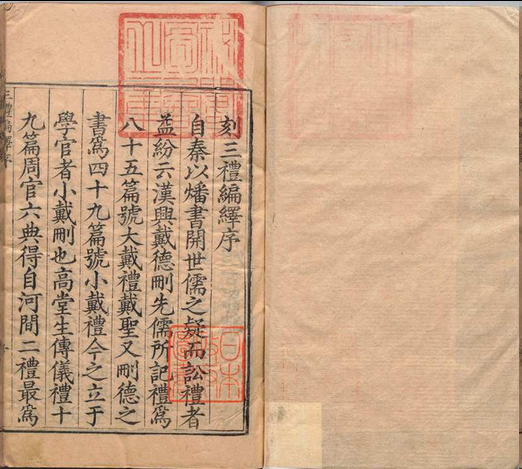 秘閣
圖書
之章
刻三禮編繹序
自秦以燔書開世儒之疑而訟禮者
益紛云漢興戴德刪先儒所記禮爲
八十五篇號大戴禮戴聖又刪德之
書爲四十九篇號小戴禮今之立于
學官者小戴刪也高堂生傳儀禮十
九篇周官六典得自河間二禮最爲
日本
政府
圖書